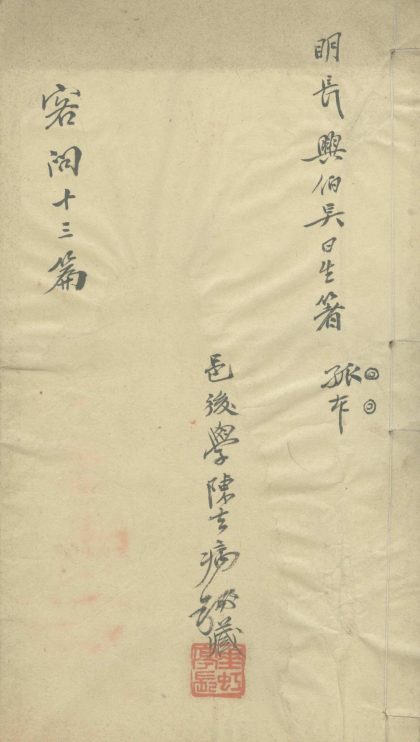 明長興伯吳日生箸
孤本
邑後學陳去病藏
垂虹亭長
客問十三篇